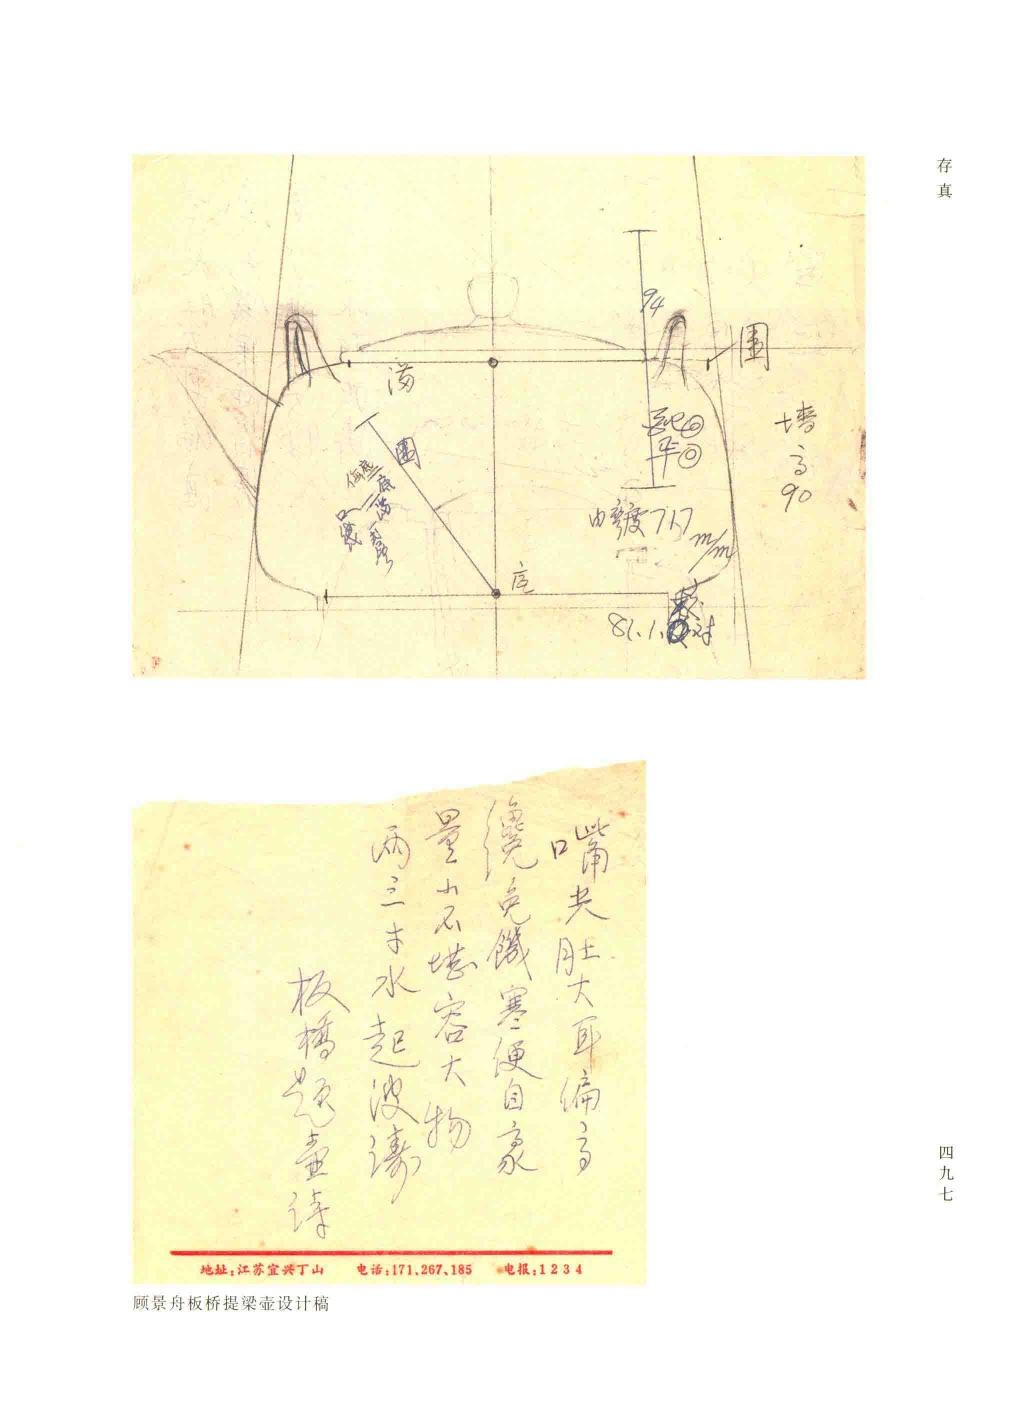 存真
94
圍
满
墙高90
圍
717 m/m
底
81.1.
嘴尖肚大耳偏高
纔免饑寒便自豪
量小不堪容大物
两三寸水起波濤
板橋题壷詩
地址:江苏宜兴丁山 电话:171,267、185 电报:1234
顾景舟板桥提梁壶设计稿
四九七